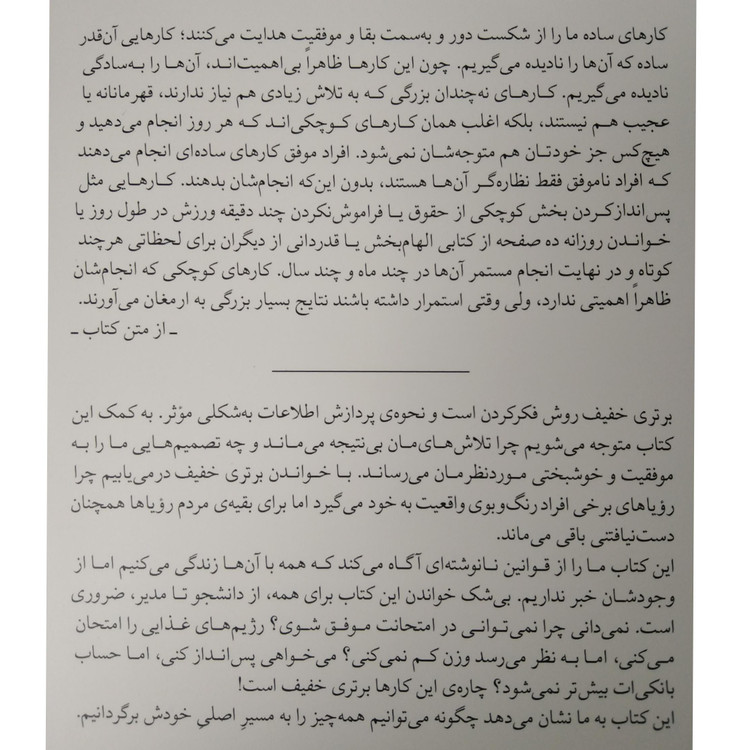 کارهای ساده ما را از شکست دور و به‌سمت بقا و موفقیت هدایت می‌کنند؛ کارهایی آن‌قدر
ساده که آن‌ها را نادیده می‌گیریم. چون این کارها ظاهراً بی‌اهمیت‌اند، آن‌ها را به‌سادگی
نادیده می‌گیریم. کارهای نه‌چندان بزرگی که به تلاش زیادی هم نیاز ندارند، قهرمانانه یا
عجیب هم نیستند، بلکه اغلب همان کارهای کوچکی‌اند که هر روز انجام می‌دهید و
هیچ‌کس جز خودتان هم متوجه‌شان نمی‌شود. افراد موفق کارهای ساده‌ای انجام می‌دهند
که افراد ناموفق فقط نظاره‌گر آن‌ها هستند، بدون این‌که انجام‌شان بدهند. کارهایی مثل
پس‌اندازکردن بخش کوچکی از حقوق یا فراموش‌نکردن چند دقیقه ورزش در طول روز یا
خواندن روزانه ده صفحه از کتابی الهام‌بخش یا قدردانی از دیگران برای لحظاتی هرچند
کوتاه و در نهایت انجام مستمر آن‌ها در چند ماه و چند سال. کارهای کوچکی که انجام‌شان
ظاهراً اهمیتی ندارد، ولی وقتی استمرار داشته باشند نتایج بسیار بزرگی به ارمغان می‌آورند.
ـ از متن کتاب ـ
برتری خفیف روش فکرکردن است و نحوه‌ی پردازش اطلاعات به‌شکلی مؤثر. به کمک این
کتاب متوجه می‌شویم چرا تلاش‌های‌مان بی‌نتیجه می‌ماند و چه تصمیم‌هایی ما را به
موفقیت و خوشبختی موردنظرمان می‌رساند. با خواندن برتری خفیف درمی‌یابیم چرا
رؤیاهای برخی افراد رنگ‌وبوی واقعیت به خود می‌گیرد اما برای بقیه‌ی مردم رؤیاها همچنان
دست‌نیافتنی باقی می‌ماند.
این کتاب ما را از قوانین نانوشته‌ای آگاه می‌کند که همه با آن‌ها زندگی می‌کنیم اما از
وجودشان خبر نداریم. بی‌شک خواندن این کتاب برای همه، از دانشجو تا مدیر، ضروری
است. نمی‌دانی چرا نمی‌توانی در امتحانت موفق شوی؟ رژیم‌های غذایی را امتحان
می‌کنی، اما به نظر می‌رسد وزن کم نمی‌کنی؟ می‌خواهی پس‌انداز کنی، اما حساب
بانکی‌ات بیش‌تر نمی‌شود؟ چاره‌ی این کارها برتری خفیف است!
این کتاب به ما نشان می‌دهد چگونه می‌توانیم همه‌چیز را به مسیرِ اصلیِ خودش برگردانیم.